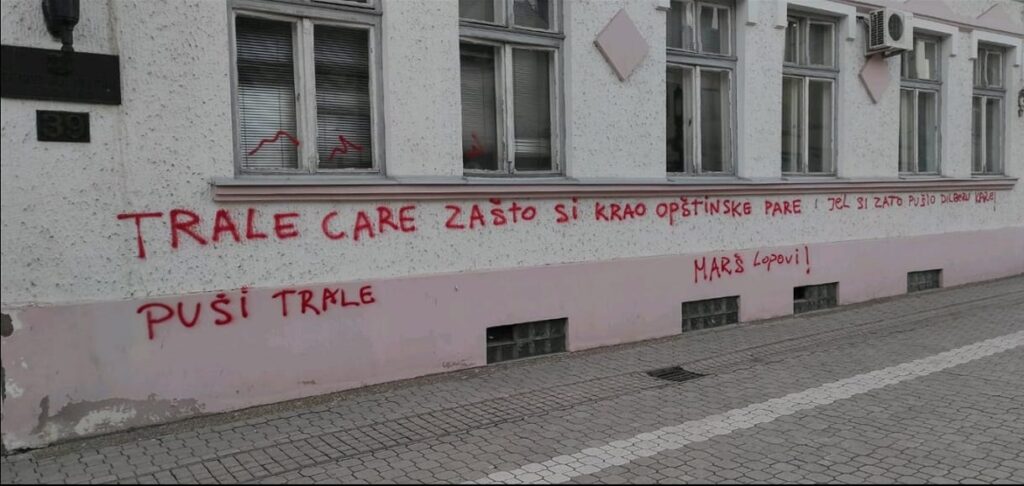 39
TRALE CARE ZAŠTO SI KRAO OPŠTINSKE PARE I JEL SI ZATO PUŠIO DILBERU KARE!
MARŠ LOPOVI!
PUŠI TRALE